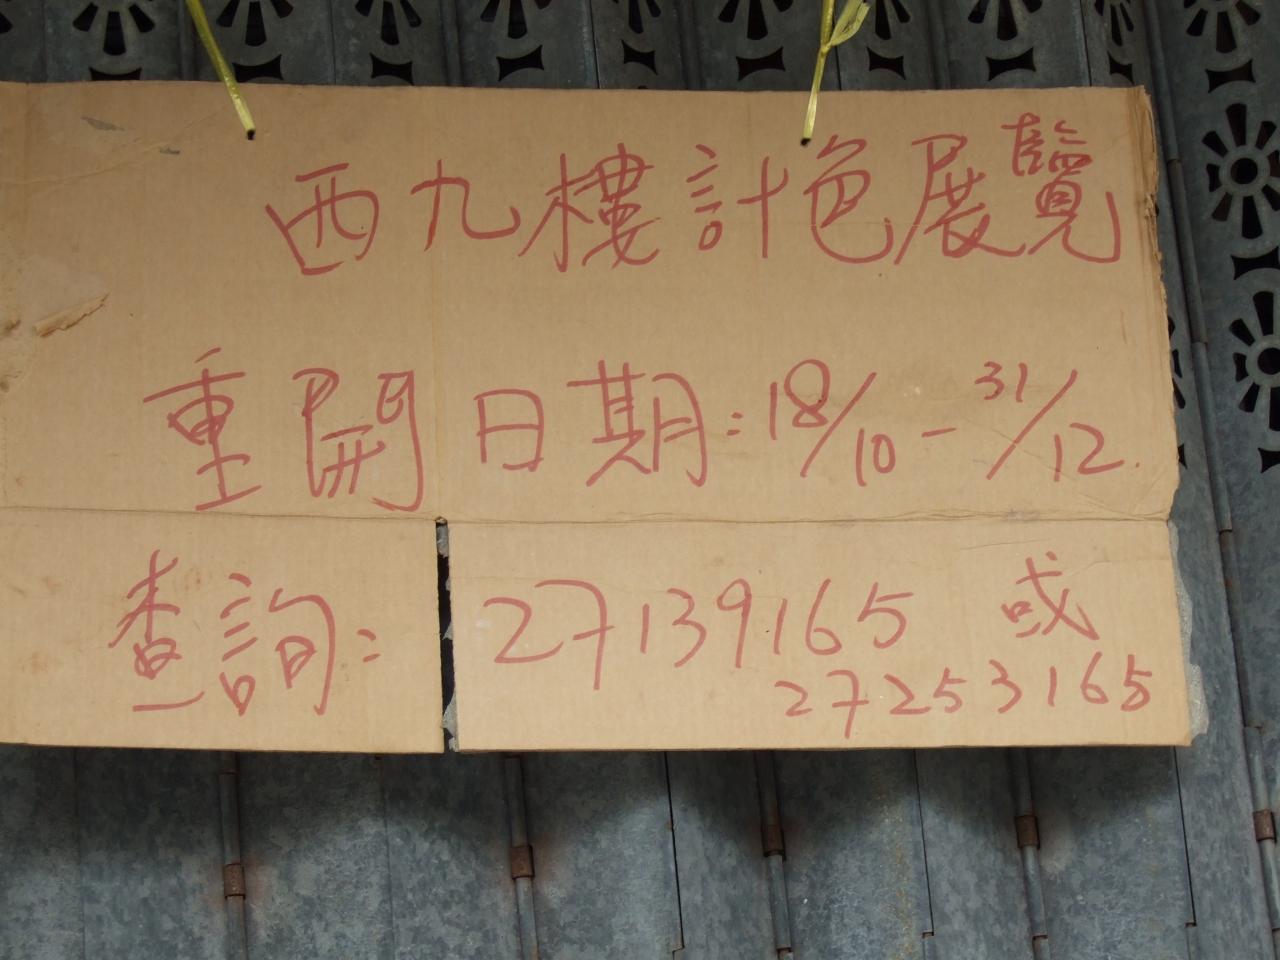 西九樓計色展覽
重開日期：18/10 - 31/12.
查詢： 27139165 或
27253165